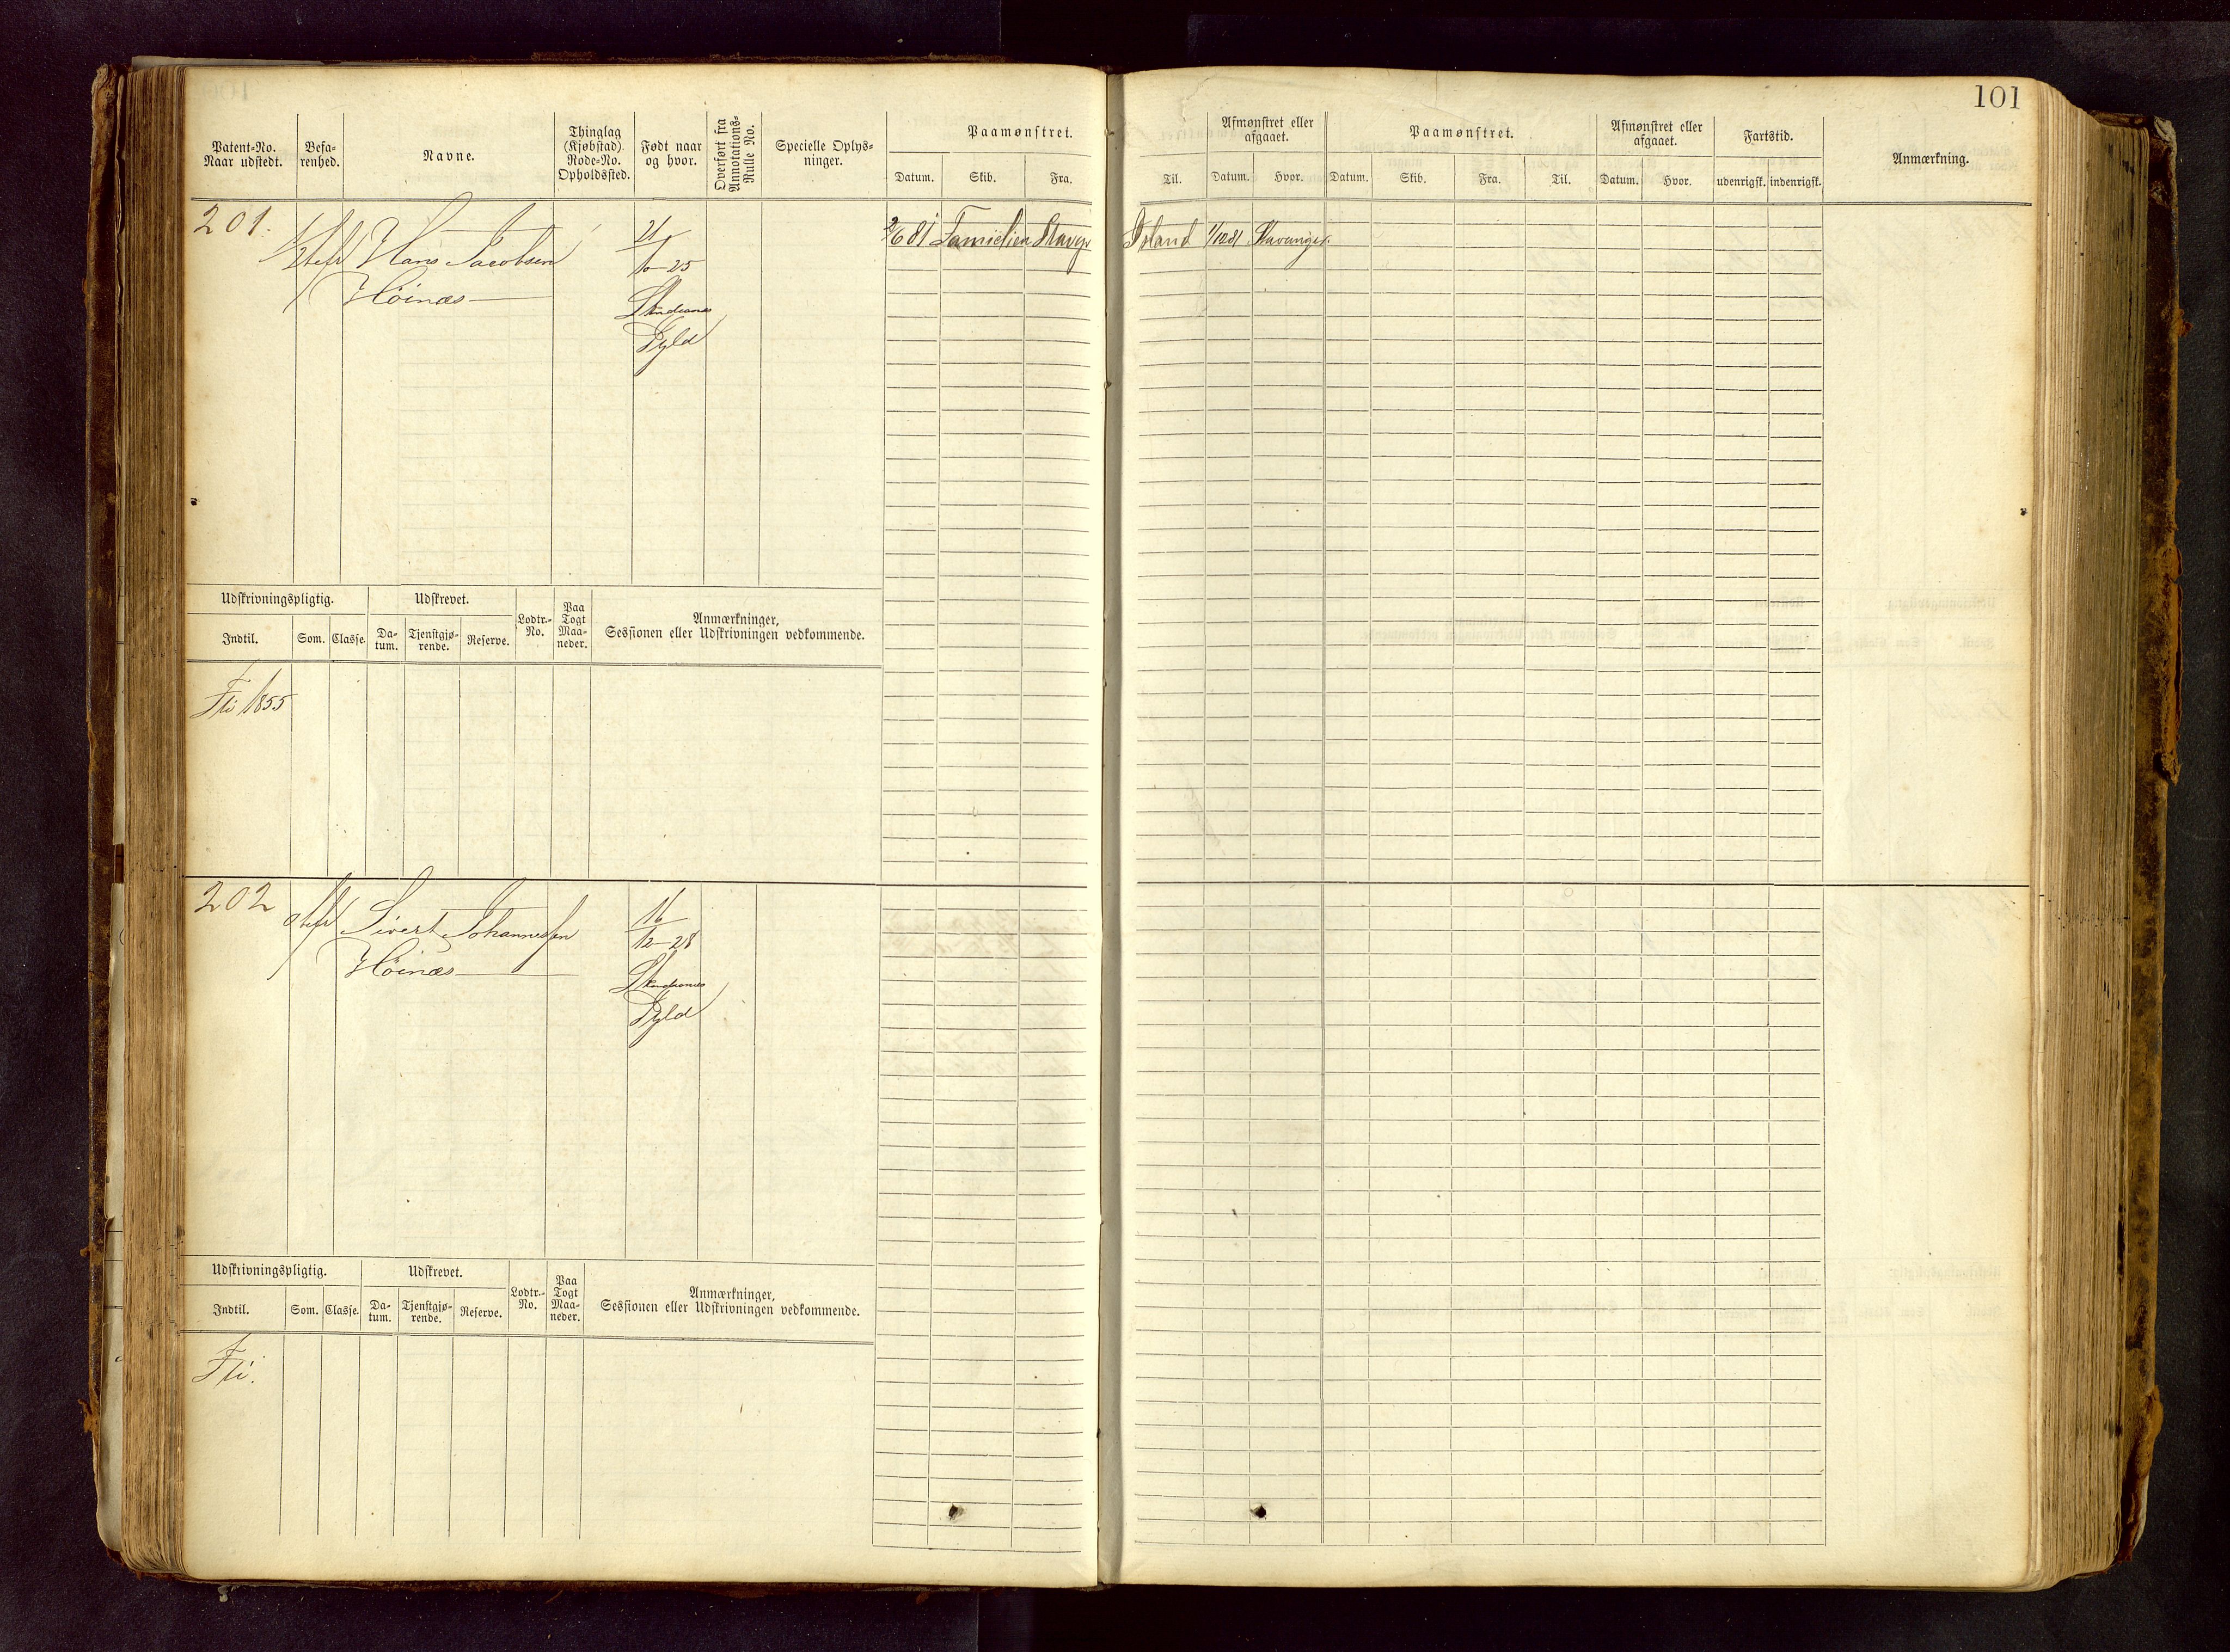 101
Patent-No. Naar udstedt.
Befarenhed.
Navne.
Thinglag (Kjøbstad). Rode-No. Opholdssted.
Født naar og hvor.
Overført fra Annotations-Rulle No.
Specielle Oplysninger.
Paamønstret.
Datum. Skib. Fra.
Til.
Afmønstret eller afgaaet.
Datum. Hvor.
Paamønstret.
Datum. Skib. Fra. Til.
Afmønstret eller afgaaet.
Datum. Hvor.
Fartstid.
udenrigsk. indenrigsk.
Anmærkning.
201.
Hans Jacobsen
Høinæs
25
Skudesnes
Fyld
2/6 81 Familien Stavgr Island 1/12 81 Stavanger.
Udskrivningspligtig.
Udskrevet.
Lodtr.-No.
Paa Togt Maaneder.
Anmærkninger,
Sessionen eller Udskrivningen vedkommende.
Indtil. Som. Classe. Datum. Tjenstgjørende. Reserve.
Fri 1855
202
Sivert Johannessen
Høinæs
16
12-28
Skudesnes
Fyld
Udskrivningspligtig.
Udskrevet.
Lodtr.-No.
Paa Togt Maaneder.
Anmærkninger,
Sessionen eller Udskrivningen vedkommende.
Indtil. Som. Classe. Datum. Tjenstgjørende. Reserve.
Fri.